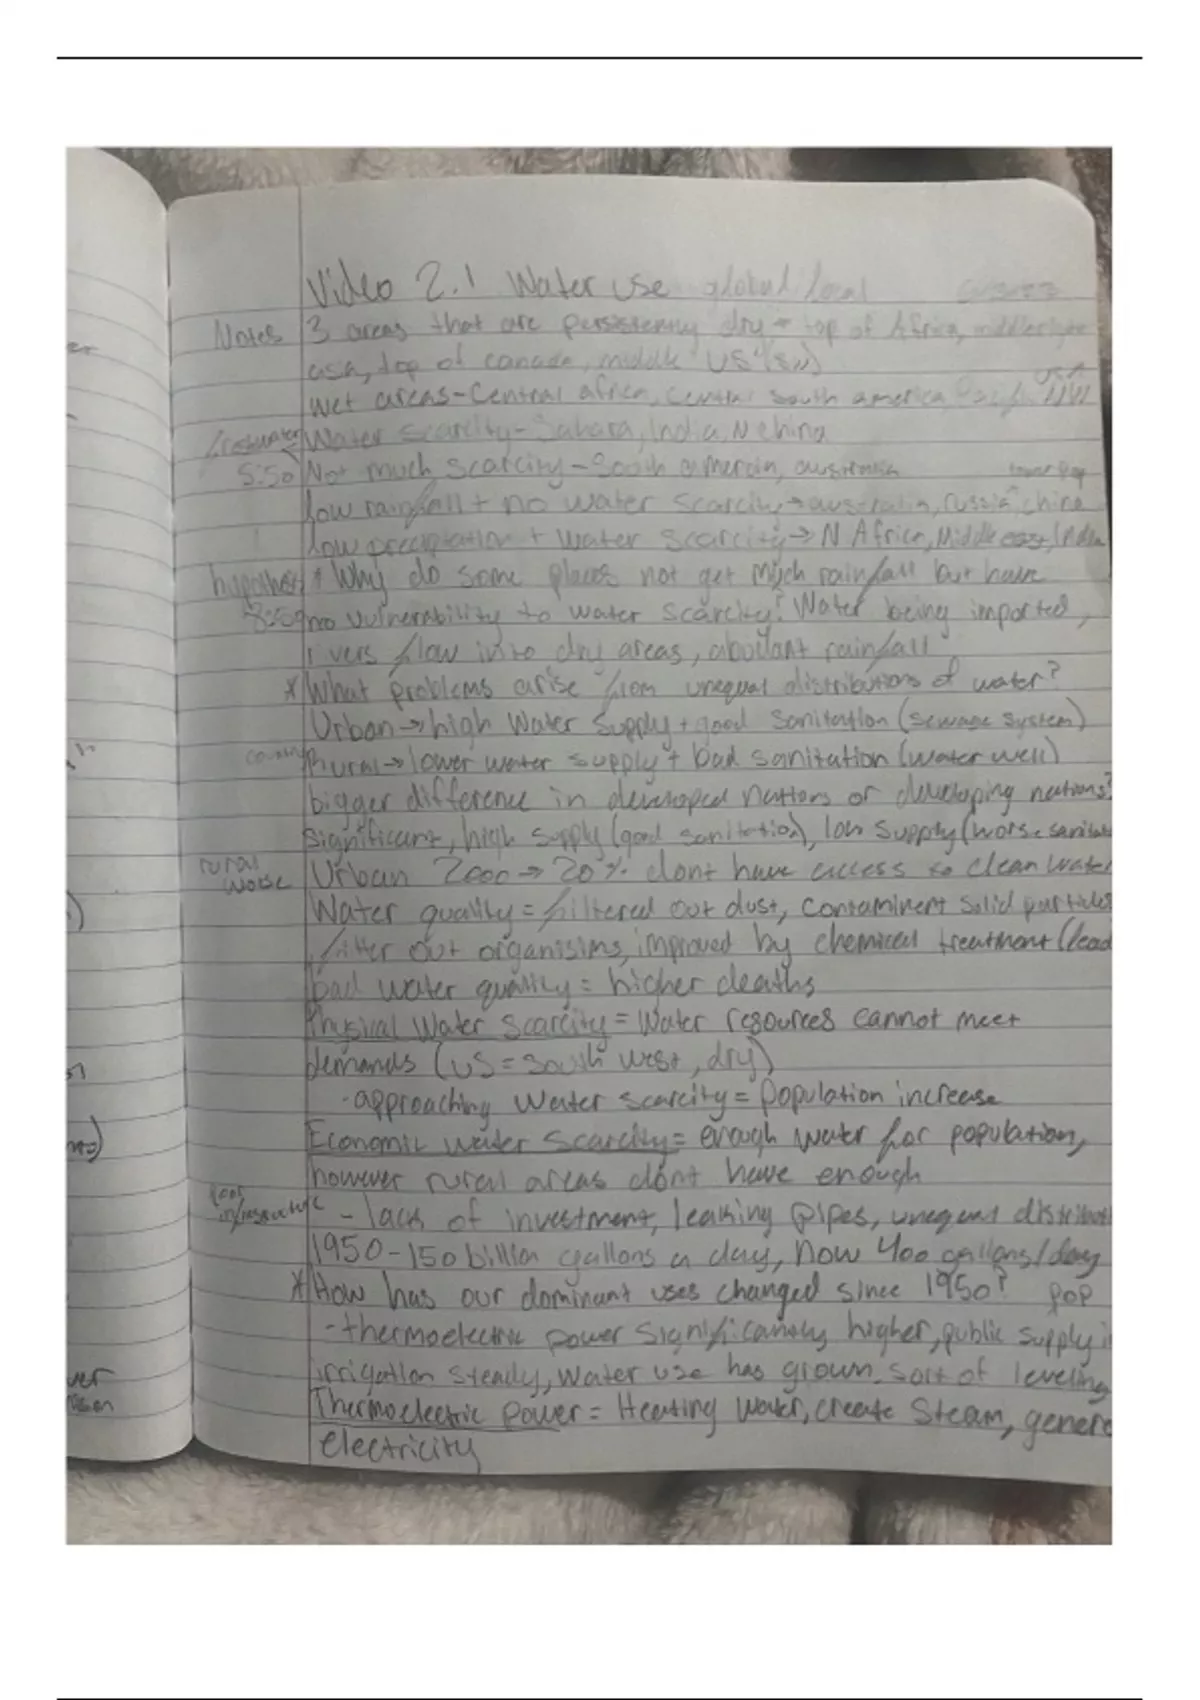 Video 2.1 Water use global/local
Notes 3 areas that are persistently dry → top of Africa, middle
asa, top of canada, middle US (SW)
USA
wet areas-Central africa, central south america, NW
freshwater Water scarcity-Sahara, India, N china
5:50 Not much scarcity-South america, australia lower pop
low rainfall + no water scarcity → australia, russia, china
low precipitation + water scarcity → N Africa, Middle east, India
* Why do some places not get much rainfall but have
no vulnerability to water scarcity? Water being imported,
rivers flow into dry areas, abudant rainfall
* What problems arise from unequal distributions of water?
Urban → high water supply + good sanitation (sewage system)
Rural → lower water supply + bad sanitation (water well)
bigger difference in developed nations or developing nations?
significant, high supply (good sanitation), low supply (worse sanitat
rural worse Urban 2000 → 20% dont have access to clean water
Water quality = filtered out dust, contaminent solid particles
filter out organisims, improved by chemical treatment (lead
bad water quality = higher deaths
Physical Water scarcity = Water resources cannot meet
demands (US = south west, dry)
-approaching water scarcity = population increase
Economic water scarcity = enough water for population,
however rural areas dont have enough
- lack of investment, leaking pipes, unequal distributi
1950-150 billion gallons a day, now 400 gallons/day
* How has our dominant uses changed since 1950? pop
- thermoelectric power significantly higher, public supply i
irrigation steady, water use has grown sort of leveling
Thermoelectric power = Heating water, create steam, genera
electricity